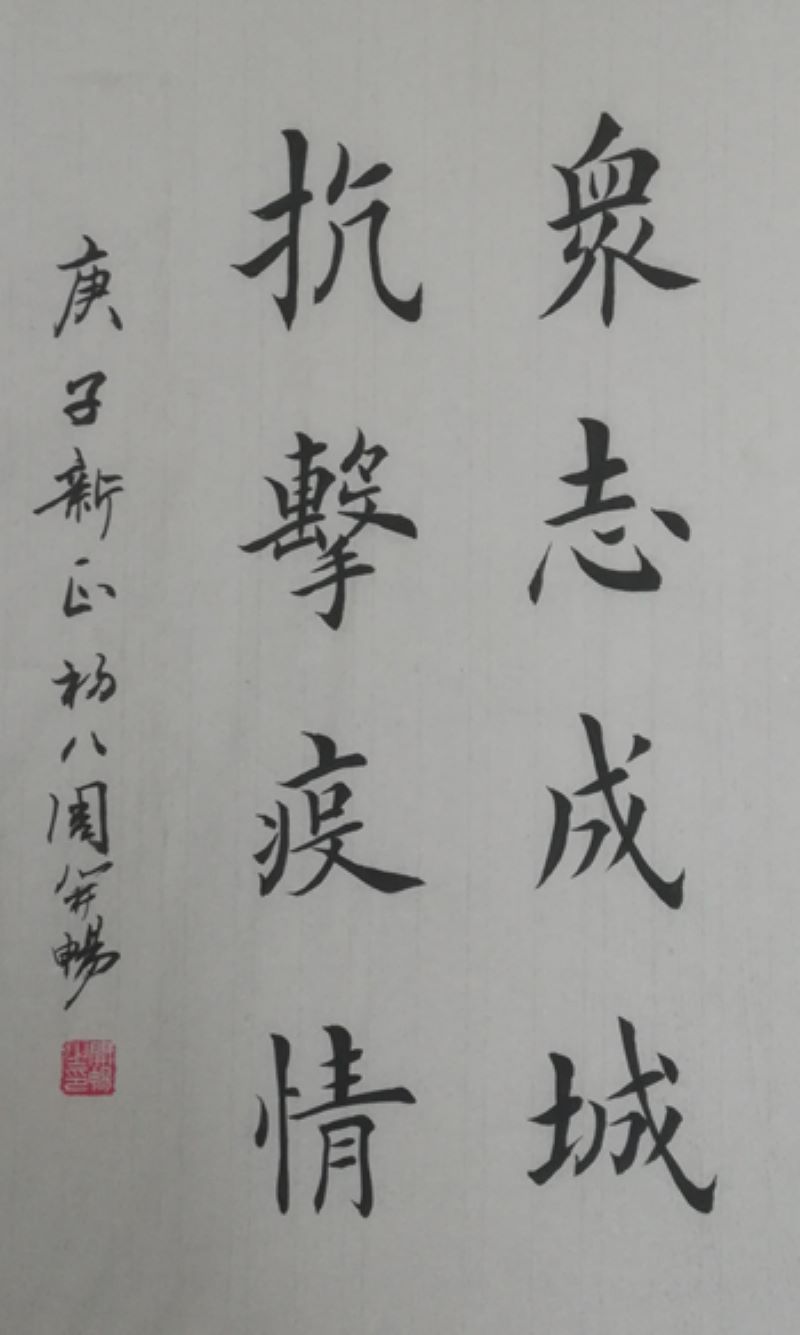 衆志成城
抗擊疫情
庚子新正初八周笄暢